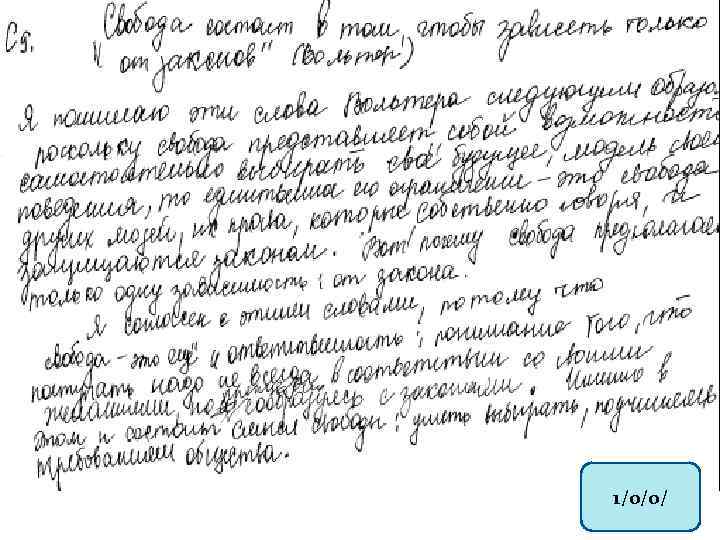 С9. "Свобода состоит в том, чтобы зависеть только
от законов" (Вольтер)
Я понимаю эти слова Вольтера следующим образом
поскольку свобода представляет собой возможность
самостоятельно выбирать своё будущее, модель своего
поведения, то единственное его ограничение – это свобода
других людей, их права, которые, собственно говоря, и
защищаются законом. Вот почему свобода предполагает
только одну зависимость: от закона.
Я согласен с этими словами, потому что
свобода – это ещё и ответственность: понимание того, что
поступать надо не всегда в соответствии со своими
желаниями, но сообразуясь с законами. Именно в
этом и состоит смысл свободы: уметь выбирать, подчиняясь
требованиям общества.
1/0/0/